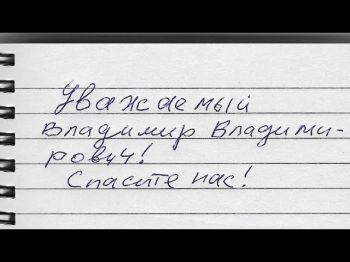 Уважаемый
Владимир Владими-
рович!
Спасите нас!